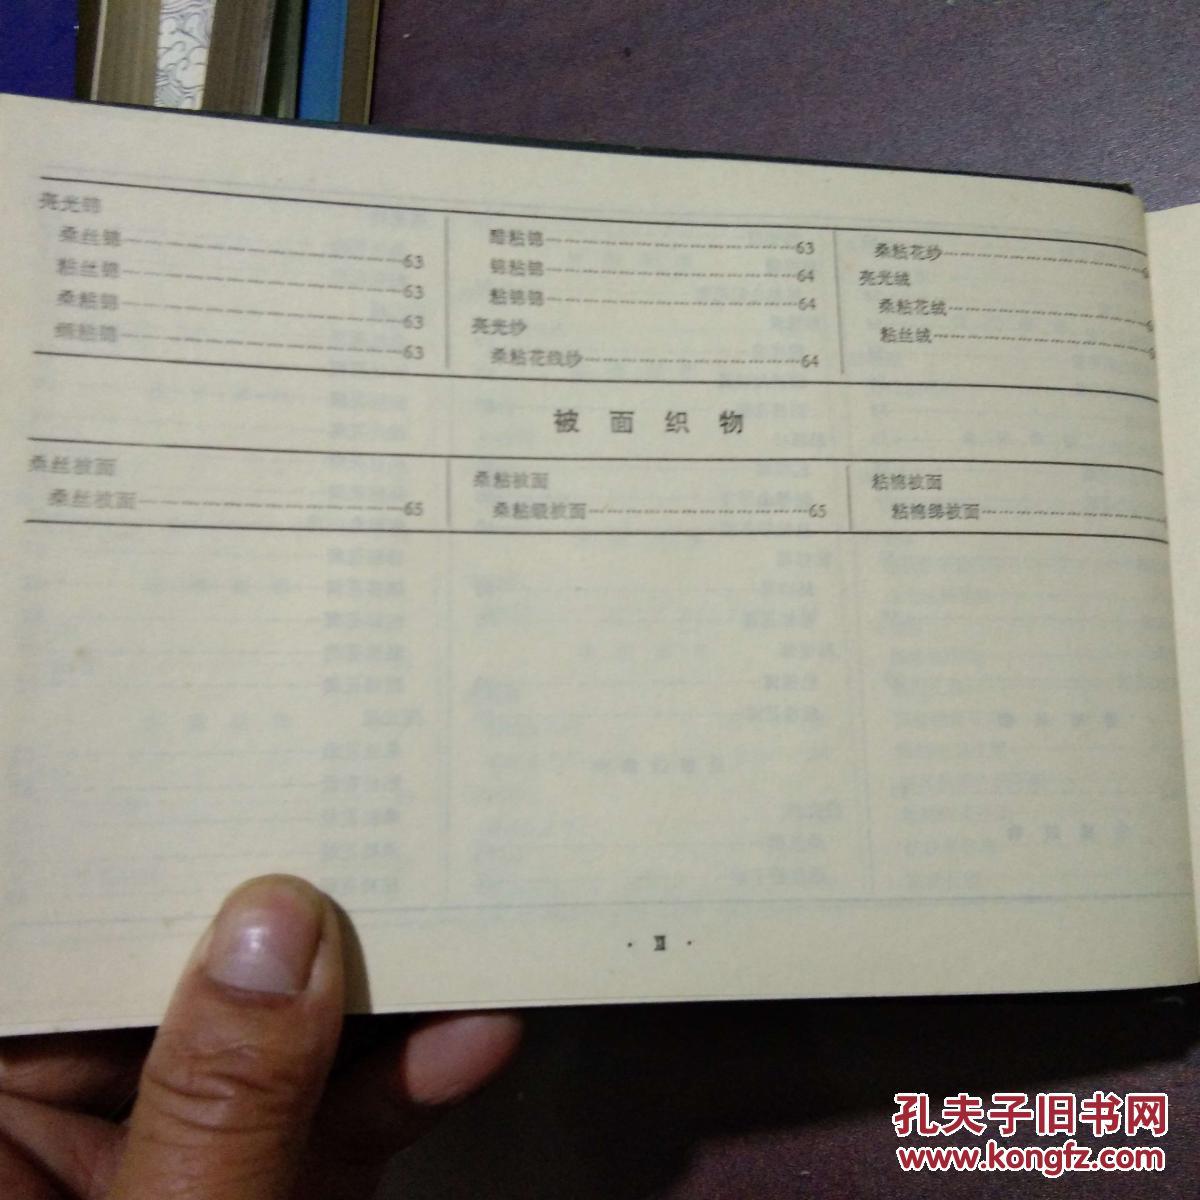 亮光锦
桑丝锦 63
粘丝锦 63
桑粘锦 63
粘锦 63
醋粘锦 63
锦粘锦 64
粘锦锦 64
亮光纱
桑粘花线纱 64
桑粘花纱
亮光绒
桑粘花绒
粘丝绒
被面织物
桑丝被面
桑丝被面 65
桑粘被面
桑粘缎被面 65
粘棉被面
粘棉绨被面
孔夫子旧书网
www.kongfz.com